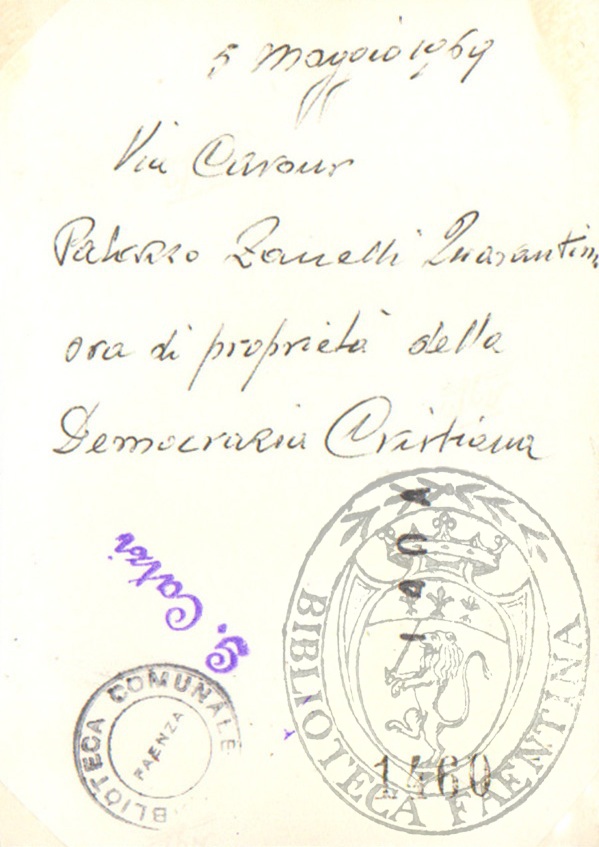 5 Maggio 1969
Via Cavour
Palazzo Zanelli Quarantini
ora di proprietà della
Democrazia Cristiana
BIBLIOTECA COMUNALE
FAENZA
BIBLIOTECA FAENTINA
1460